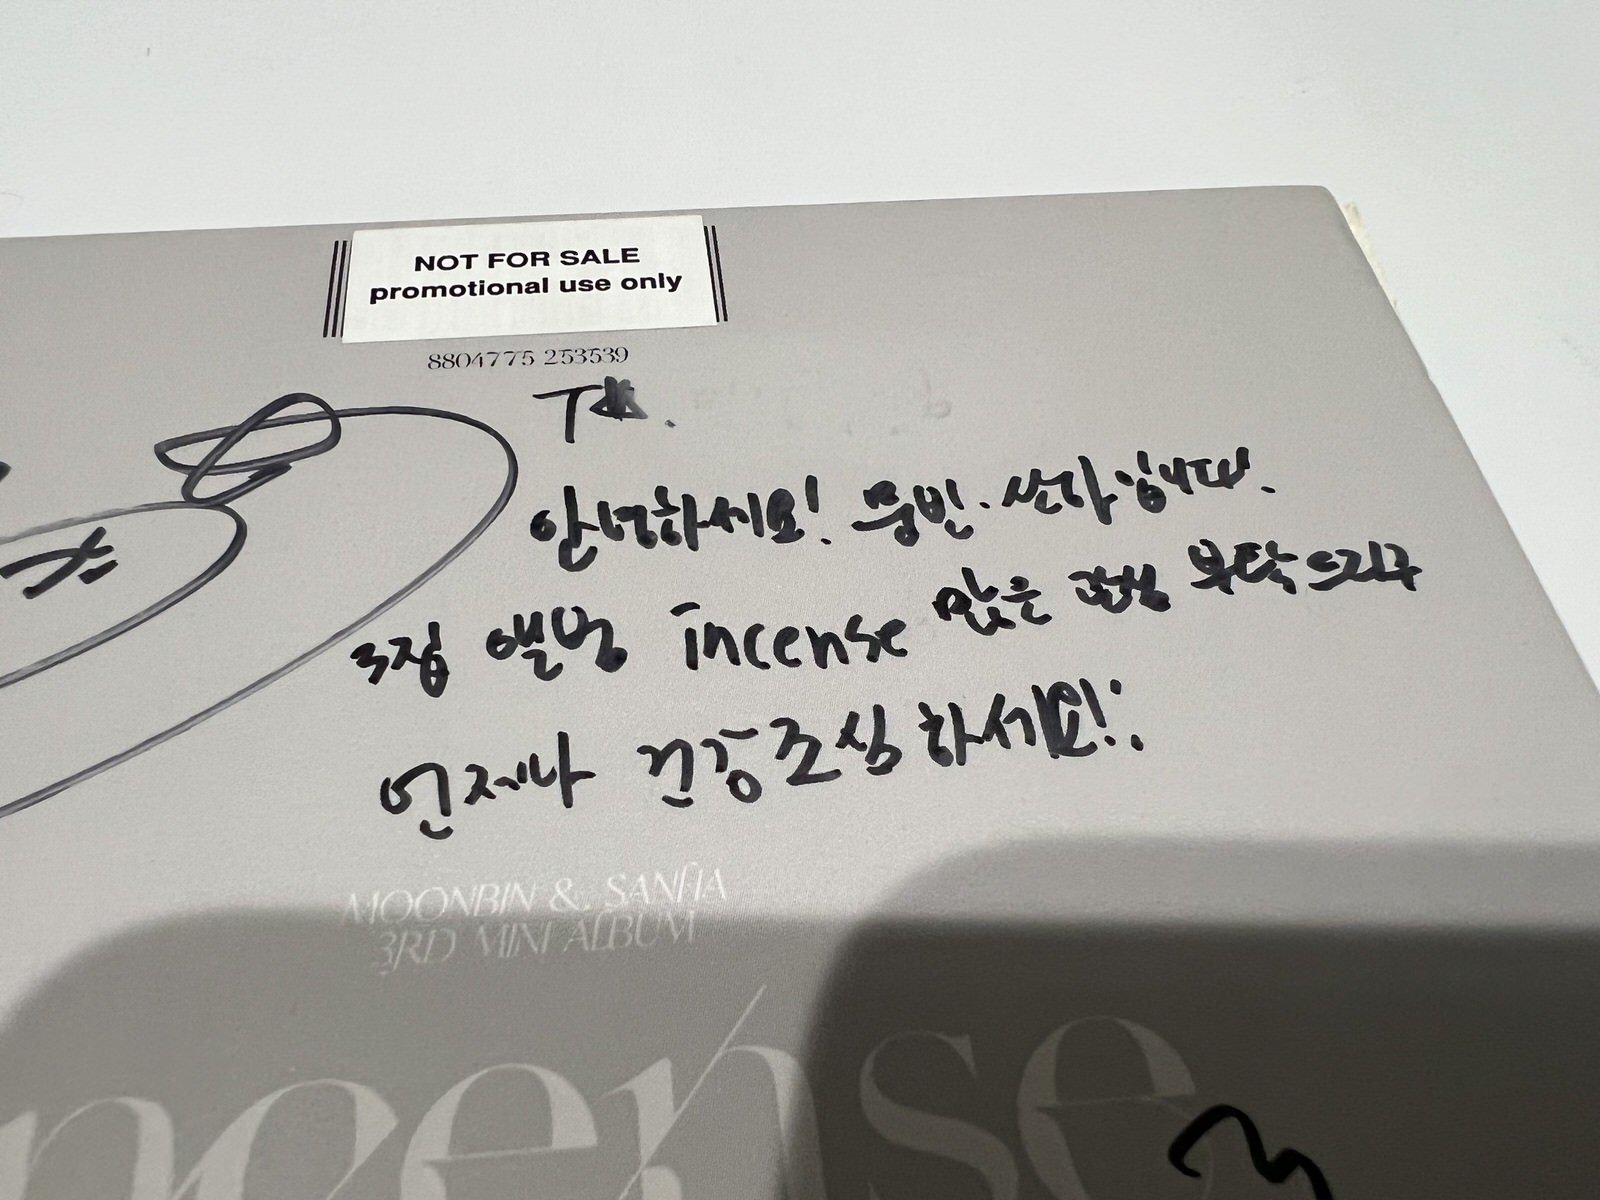 NOT FOR SALE
promotional use only
8804775 253539
안녕하세요! 문빈·산하입니다.
3집 앨범 incense 많은 관심 부탁드리구
언제나 건강조심하세요!
MOONBIN & SANHA
3RD MINI ALBUM
incense